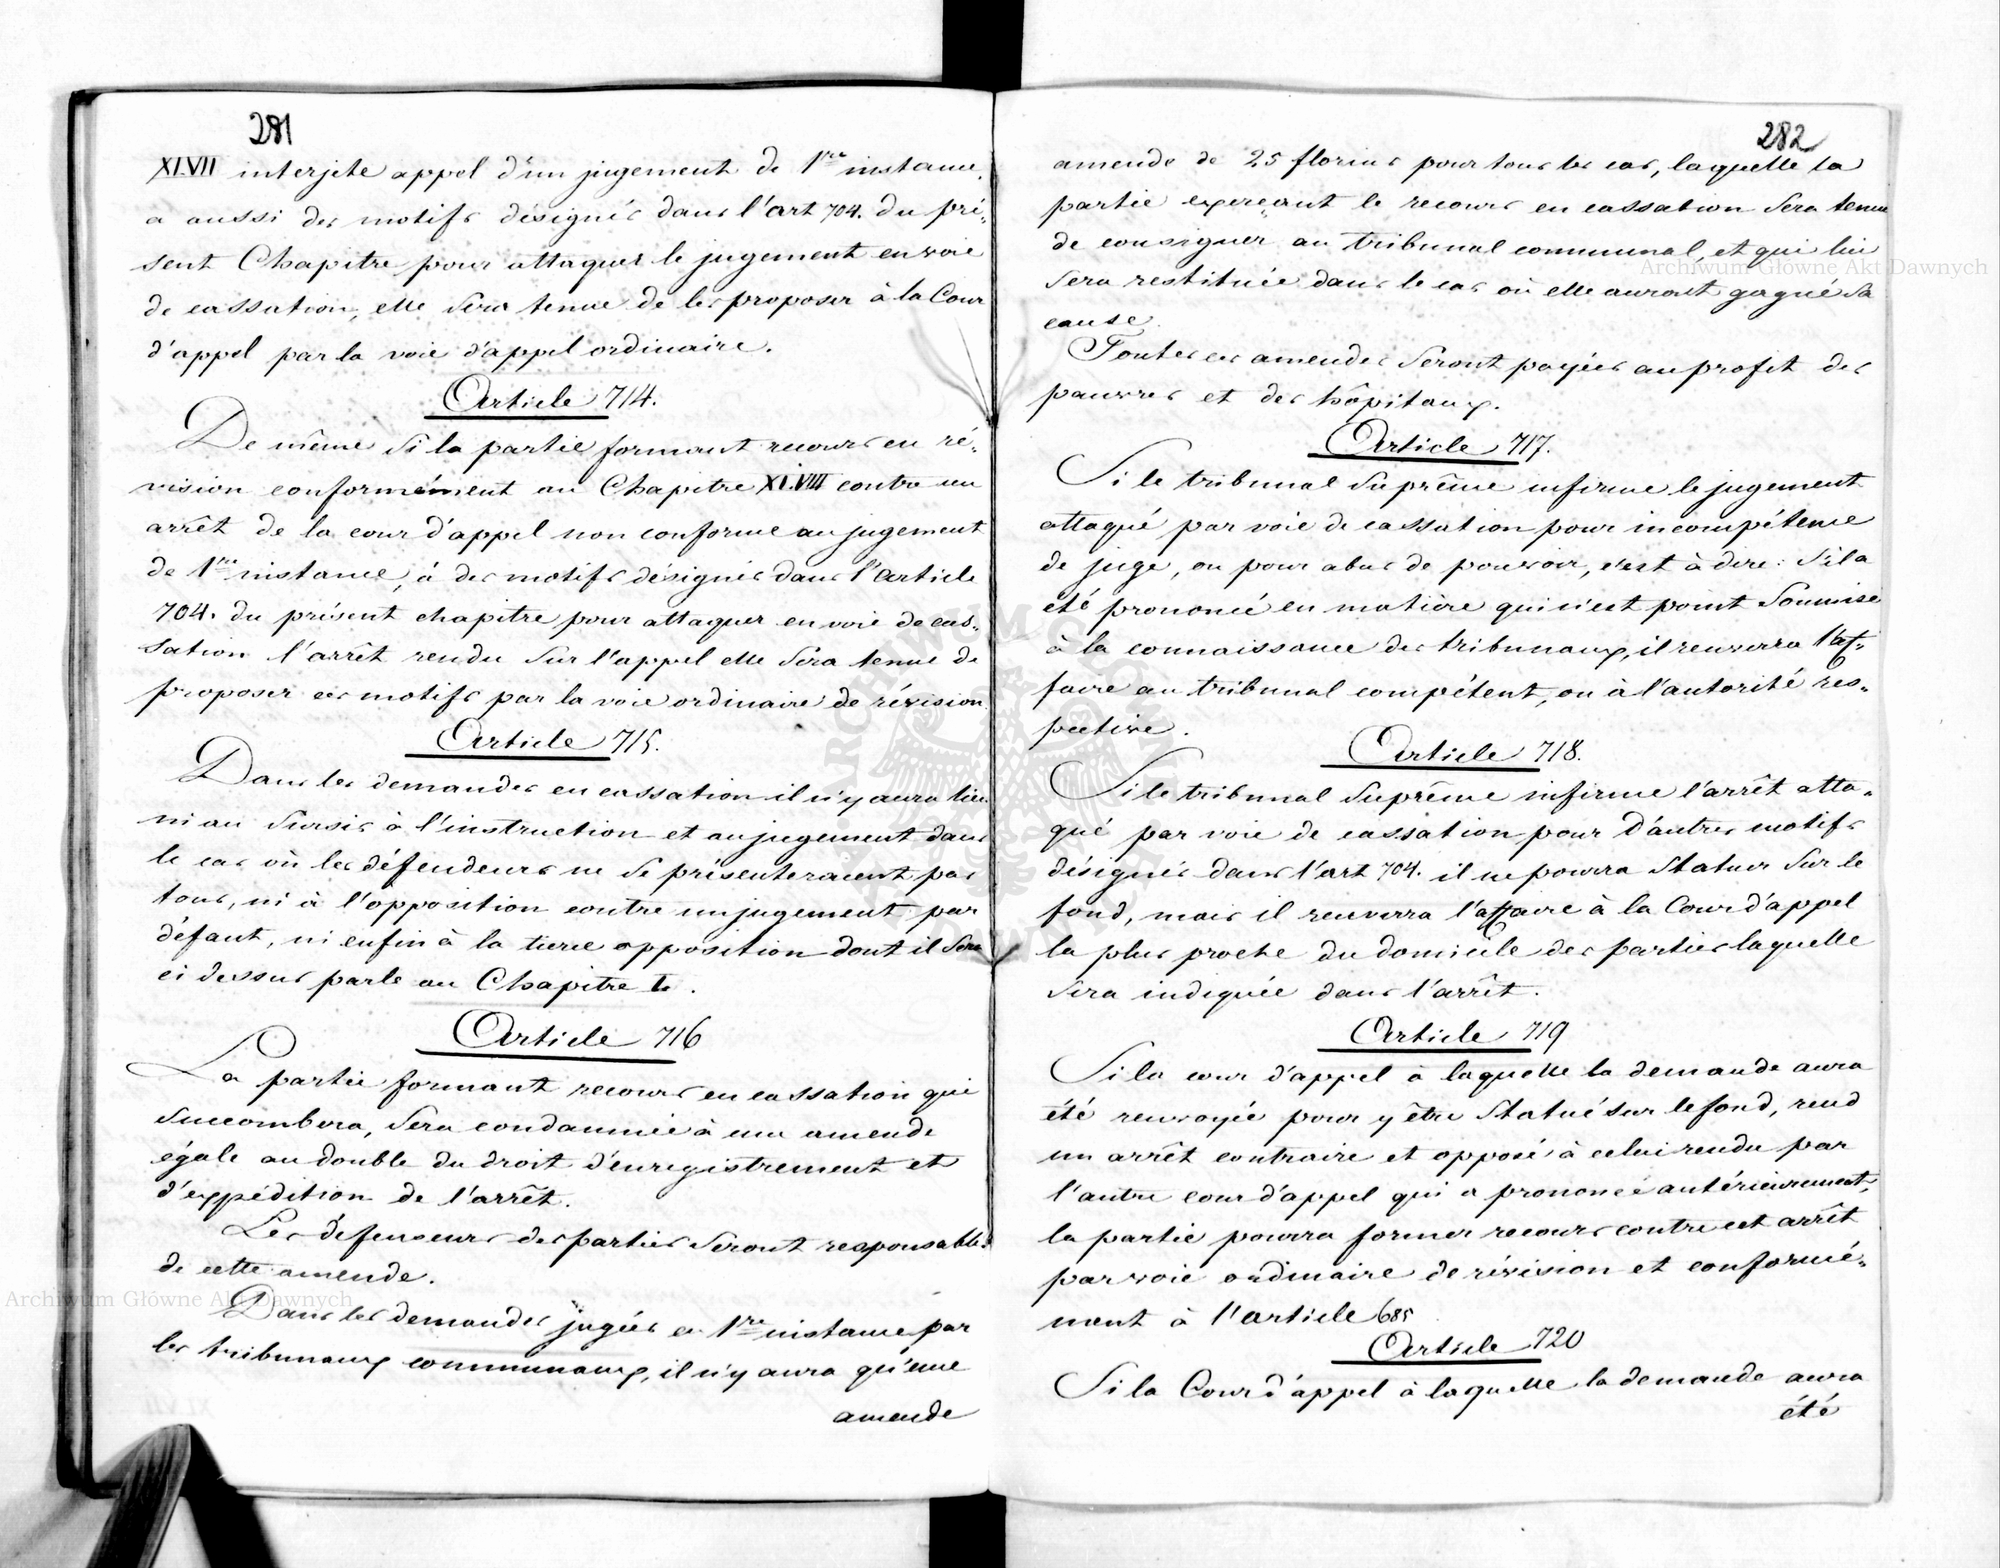 281
XLVII interjete appel d'un jugement de 1re instance,
a aussi des motifs désignés dans l'art 704. du pré-
sent Chapitre pour attaquer le jugement en voie
de cassation, elle sera tenue de les proposer à la Cour
d'appel par la voie d'appel ordinaire.
Article 714.
De même si la partie formant recours en ré-
vision conformément au Chapitre XLVIII contre un
arrêt de la cour d'appel non conforme au jugement
de 1re instance, a des motifs désignés dans l'article
704. du présent chapitre pour attaquer en voie de cas-
sation l'arrêt rendu sur l'appel elle sera tenue de
proposer ces motifs par la voie ordinaire de révision
Article 715.
Dans les demandes en cassation il n'y aura lieu
ni au sursis à l'instruction et au jugement dans
le cas où les défendeurs ne se présenteraient pas
tous, ni à l'opposition contre un jugement par
défaut, ni enfin à la tierce opposition dont il sera
ci dessus parlé au Chapitre L.
Article 716
La partie formant recours en cassation qui
succombera, sera condamnée à une amende
égale au double du droit d'enregistrement et
d'expédition de l'arrêt.
Les défenseurs des parties seront responsables
de cette amende.
Dans les demandes jugées en 1re instance par
les tribunaux communaux, il n'y aura qu'une
amende
282
amende de 25 florins pour tous les cas, laquelle la
partie exerçant le recours en cassation sera tenue
de consigner au tribunal communal, et qui lui
sera restituée dans le cas où elle aurait gagné sa
cause.
Toutes ces amendes seront payées au profit des
pauvres et des hôpitaux.
Article 717.
Si le tribunal Suprême infirme le jugement
attaqué par voie de cassation pour incompétence
de juge, ou pour abus de pouvoir, c'est à dire: s'il a
été prononcé en matière qui n'est point soumise
à la connaissance des tribunaux, il renverra l'af-
faire au tribunal compétent, ou à l'autorité res-
pective.
Article 718.
Si le tribunal Suprême infirme l'arrêt atta-
qué par voie de cassation pour d'autres motifs
désignés dans l'art 704. il ne pourra statuer sur le
fond, mais il renverra l'affaire à la Cour d'appel
la plus proche du domicile des parties laquelle
sera indiquée dans l'arrêt.
Article 719
Si la cour d'appel à laquelle la demande aura
été renvoyée pour y être statué sur le fond, rend
un arrêt contraire et opposé à celui rendu par
l'autre cour d'appel qui a prononcé antérieurement,
la partie pourra former recours contre cet arrêt
par voie ordinaire de révision et conformé-
ment à l'article 685
Article 720
Si la Cour d'appel à laquelle la demande aura
été
Archiwum Główne Akt Dawnych
Archiwum Główne Akt Dawnych